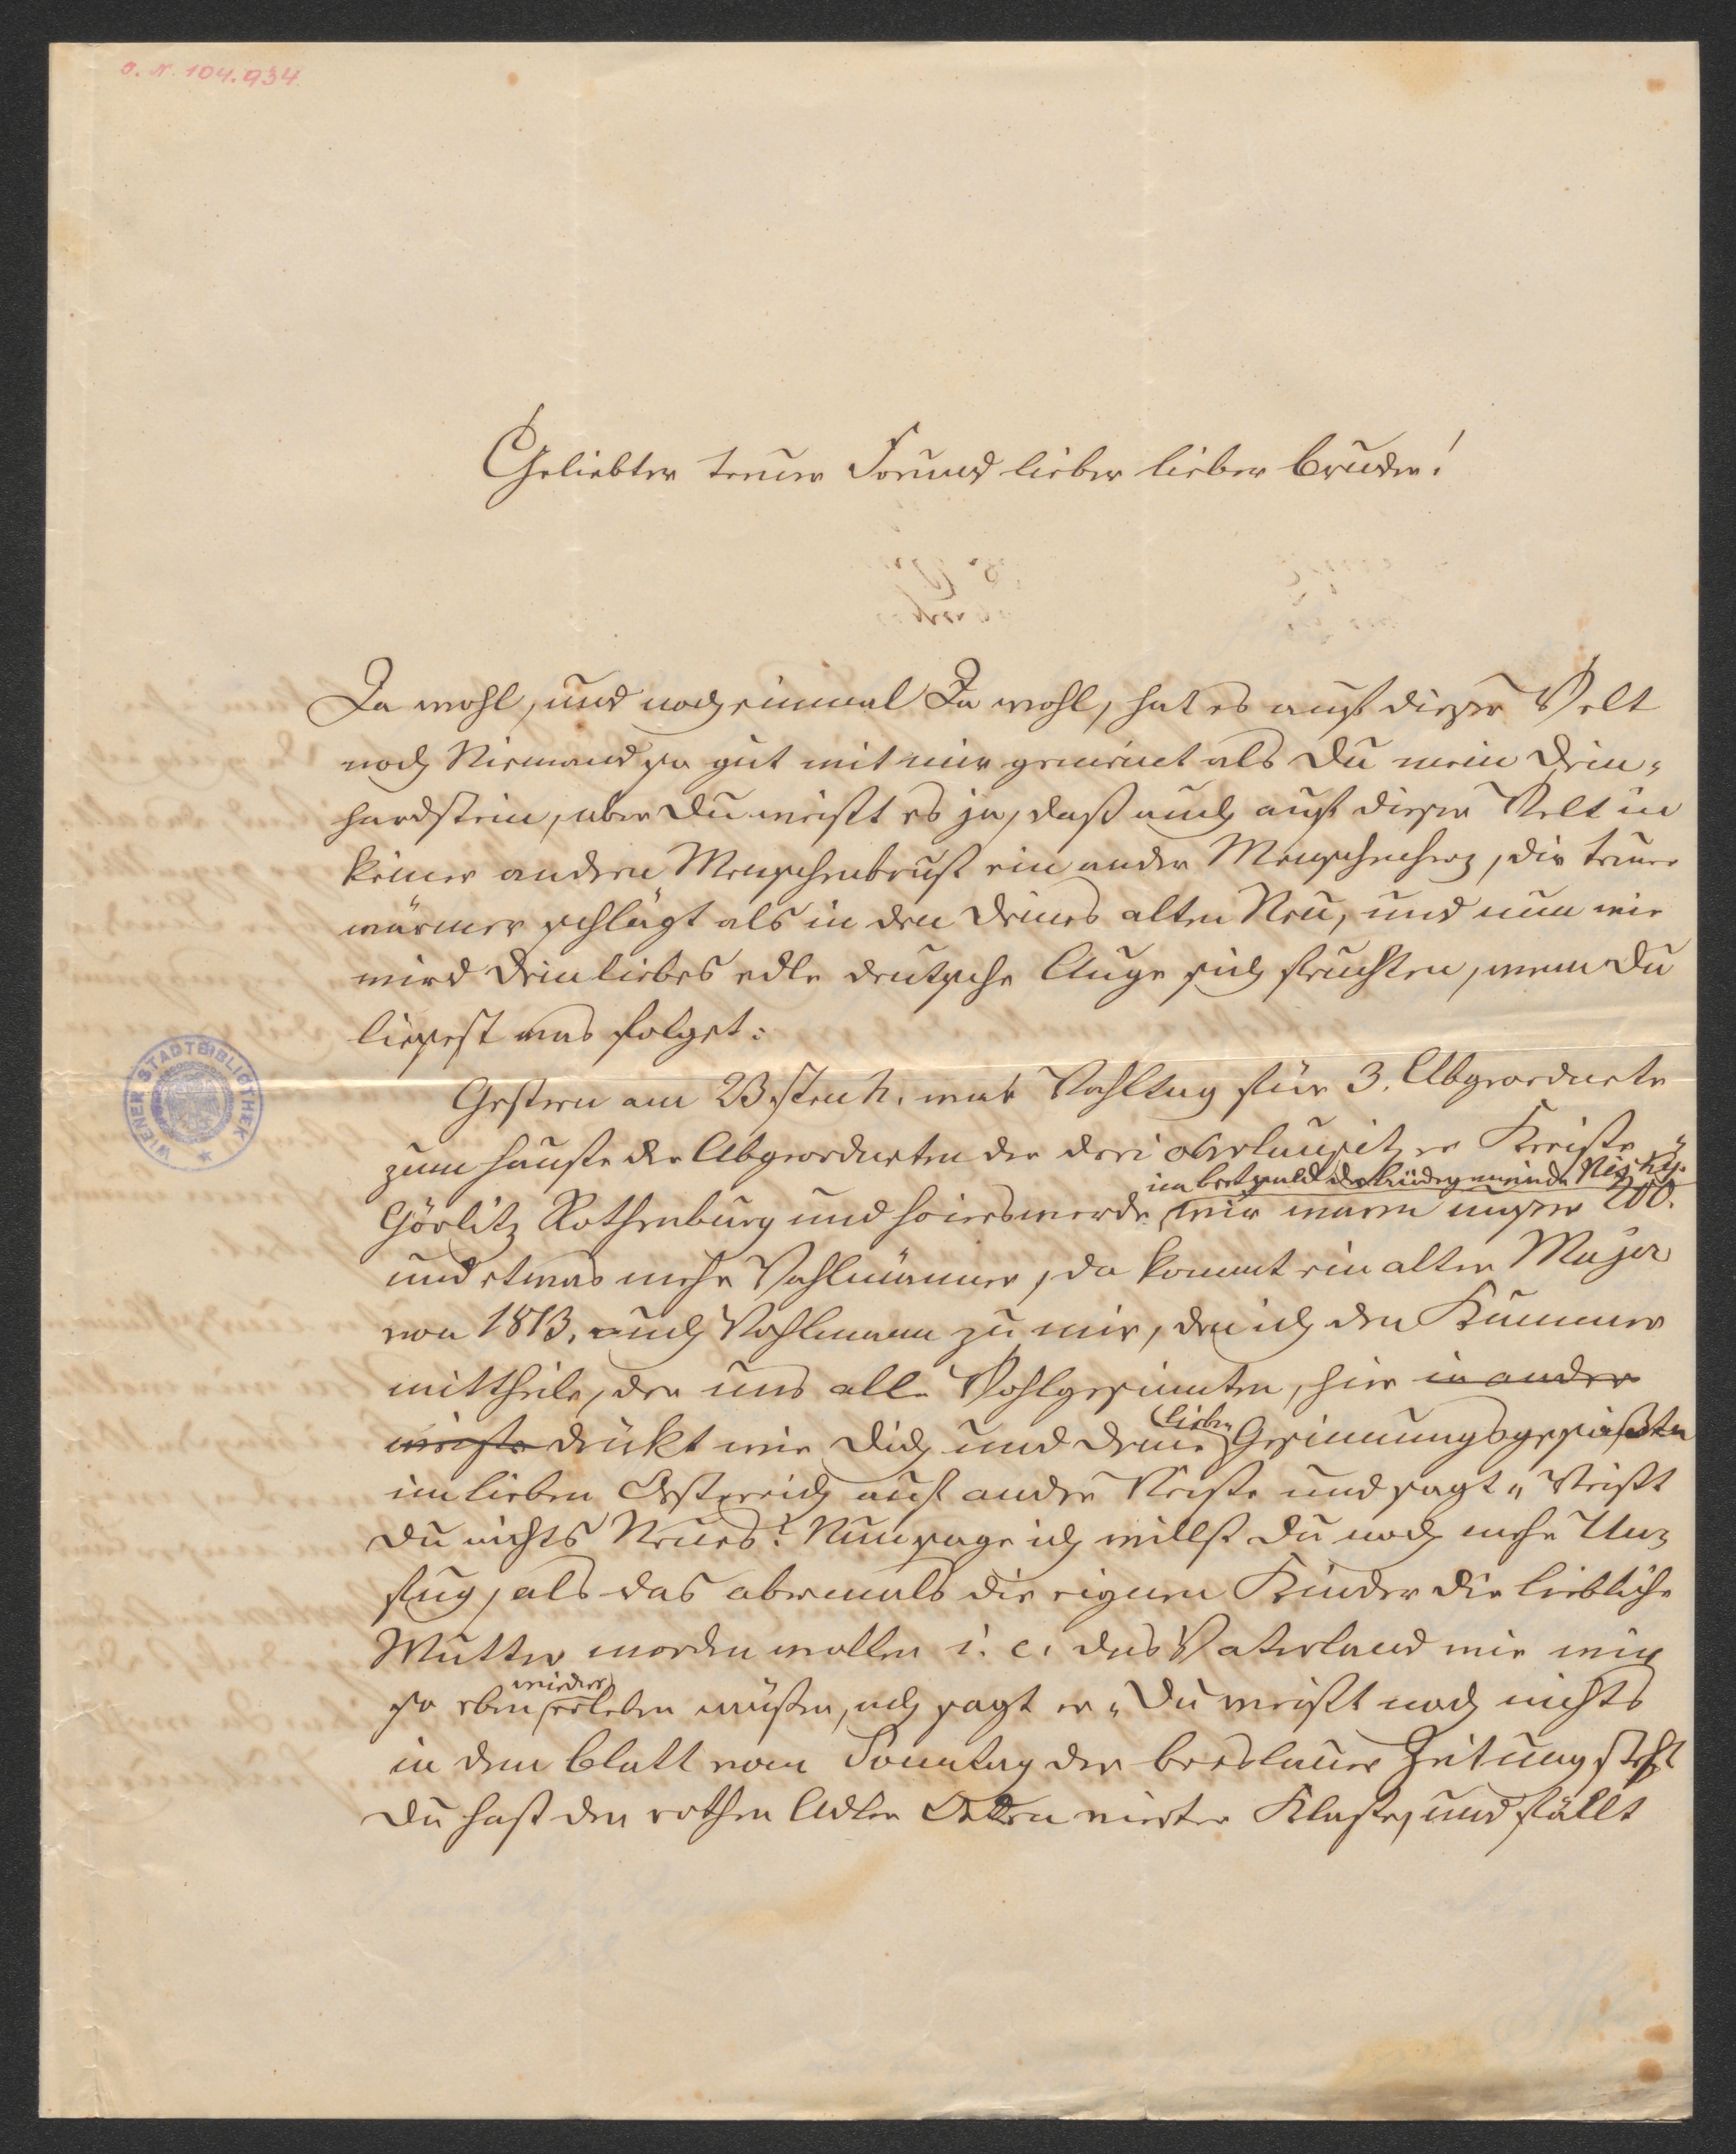 O. N. 104.934
Geliebter treuer Freund lieber lieber Bruder!
Ja wohl, und noch einmal Ja wohl, hat es auf dieser Welt
noch Niemand so gut mit mir gemeint als Du mein Dein-
hardstein, aber Du weißt es ja, daß auch auf dieser Welt in
keiner andern Menschenbrust ein ander Menschenherz, dir treuer
wärmer schlägt als in der Deines alten Neu, und nun wie
wird Dein liebes edle deutsche Auge sich feuchten, wenn Du
liesest was folget:
Gestern am 23sten h. war Wahltag für 3. Abgeordnete
zum Hause der Abgeordneten der drei oberlausitzer Kreise
im Betsaal der Brüdergemeinde Nisky.
Görlitz Rothenburg und Hoierswerde, wir waren unser 200.
und etwas mehr Wahlmänner, da kommt ein alter Major
von 1813, auch Wahlmann zu mir, dem ich den Kummer
mittheile, der uns alle Wohlgesinnten, hier in andrer
weise drükt wie Dich und Deine lieben Gesinnungs
im lieben Oestreich auf andre Weise und sagt "Weißt
Du nichts Neues? Nun sage ich willst Du noch mehr Un-
fug, als das abermals die eignen Kinder die liebliche
Mutter morden wollen i. e. das Vaterland wie wir
so eben wieder erleben müßen, ach sagt er "Du weißt noch nichts
in dem Blatt vom Sonntag der breslauer Zeitung steht
Du hast den rothen Adler Orden vierter Klasse, und fällt
WIENER STADTBIBLIOTHEK